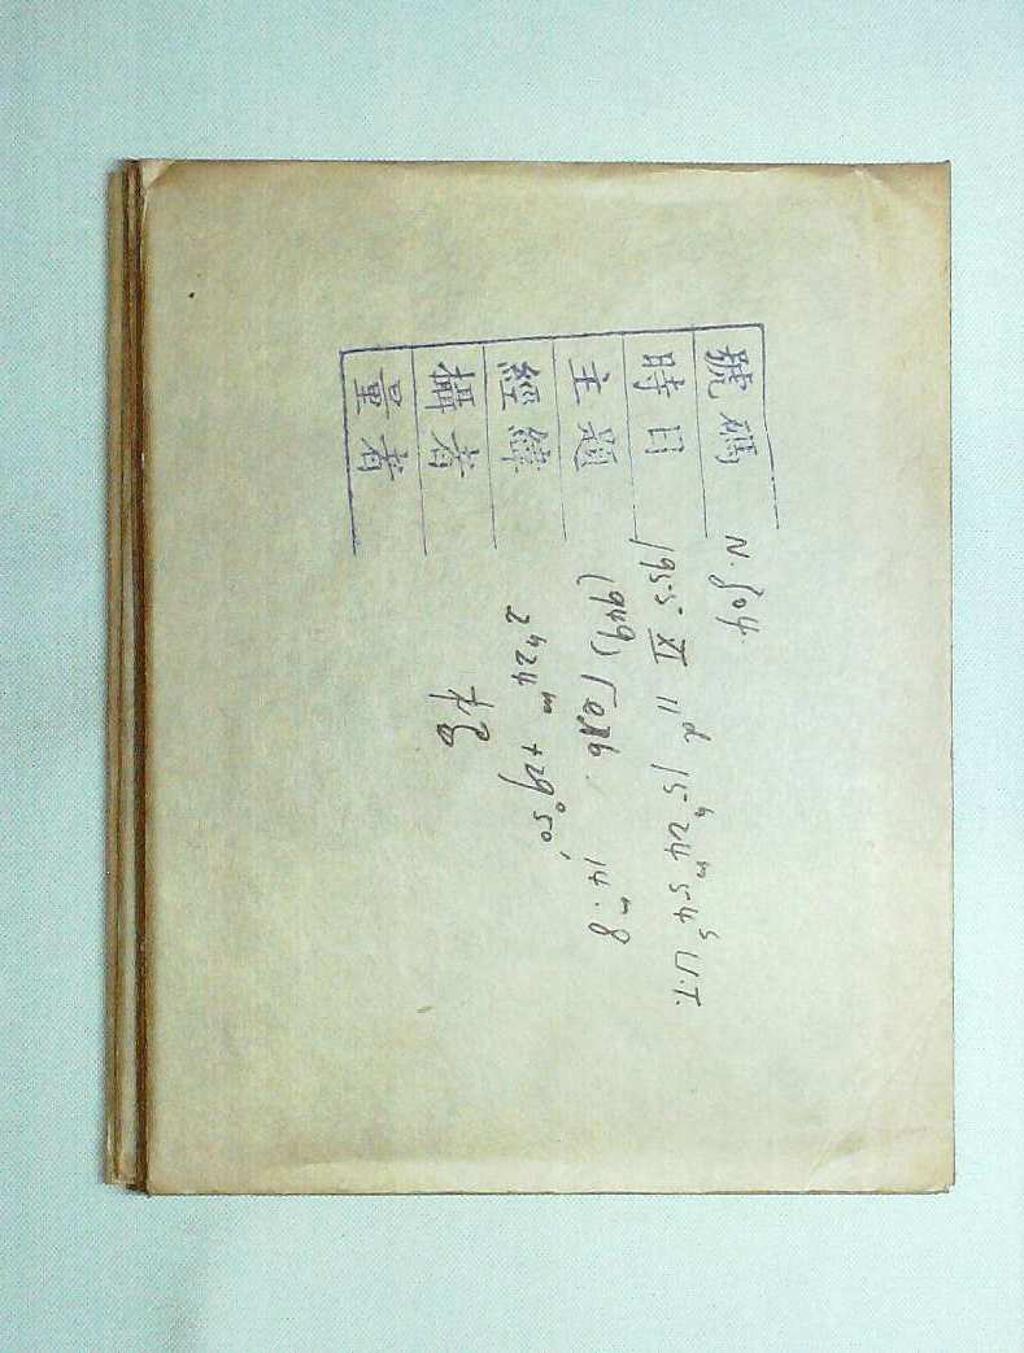 號碼 N. 804.
時日 1955 XI 11d 15h 24m 54s U.T.
主題 (949) Гекб. 14m.8
經緯 2h24m + 29°50'
攝者
量者